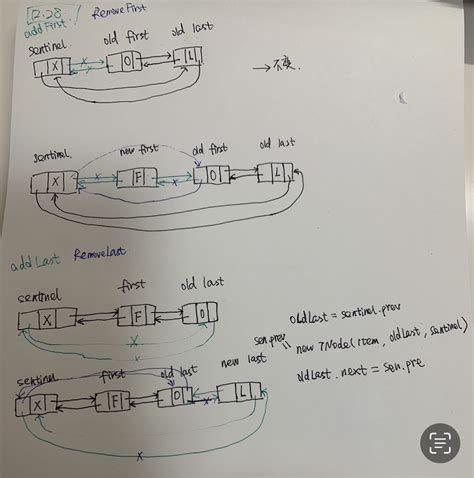 [2.28]
addFirst / RemoveFirst
sentinel. old first old last
X O L
→不变.
sentinel. new first old first old last
X F O L
addLast RemoveLast
sentinel first old last
X F O
oldLast = sentinel.prev
sen.prev = new TNode(item, oldLast, sentinel)
oldLast.next = sen.pre
sentinel first old last new last
X F O L